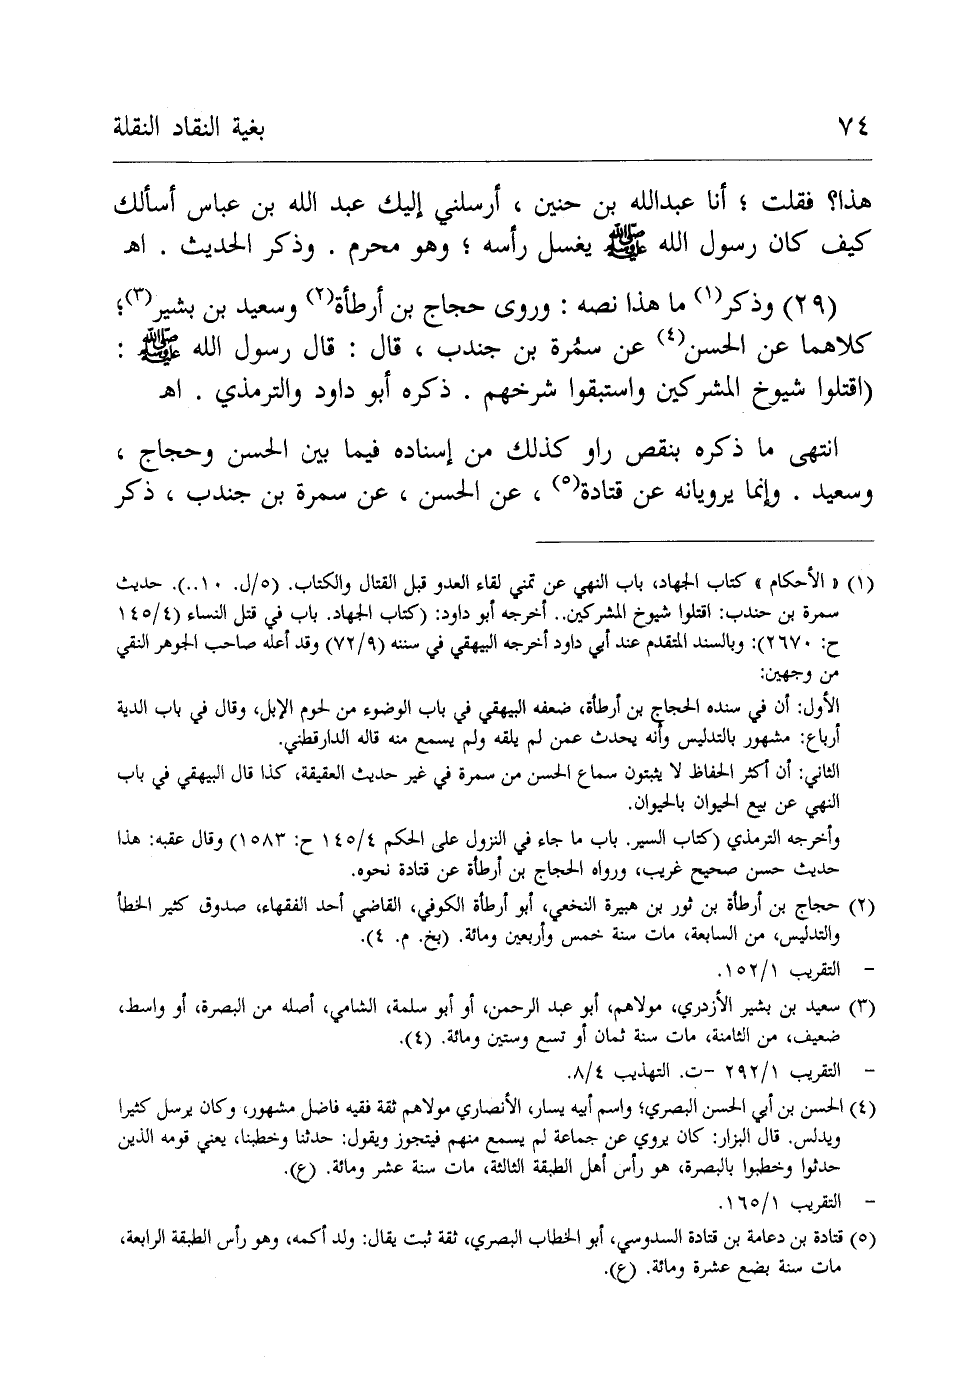 ٧٤ بغية النقاد النقلة
هذا؟ فقلت ؛ أنا عبدالله بن حنين ، أرسلني إليك عبد الله بن عباس أسألك
كيف كان رسول الله ﷺ يغسل رأسه ؛ وهو محرم . وذكر الحديث . اهـ
(٢٩) وذكر(١) ما هذا نصه : وروى حجاج بن أرطأة(٢) وسعيد بن بشير(٣)؛
كلاهما عن الحسن(٤) عن سمُرة بن جندب ، قال : قال رسول الله ﷺ :
(اقتلوا شيوخ المشركين واستبقوا شرخهم . ذكره أبو داود والترمذي . اهـ
انتهى ما ذكره بنقص راو كذلك من إسناده فيما بين الحسن وحجاج ،
وسعيد . وإنما يرويانه عن قتادة(٥) ، عن الحسن ، عن سمرة بن جندب ، ذكر
(١) « الأحكام » كتاب الجهاد، باب النهي عن تمني لقاء العدو قبل القتال والكتاب. (٥/ل. ١٠..). حديث
سمرة بن حندب: اقتلوا شيوخ المشركين.. أخرجه أبو داود: (كتاب الجهاد. باب في قتل النساء (١٤٥/٤
ح: ٢٦٧٠): وبالسند المتقدم عند أبي داود أخرجه البيهقي في سننه (٧٢/٩) وقد أعله صاحب الجوهر النقي
من وجهين:
الأول: أن في سنده الحجاج بن أرطأة، ضعفه البيهقي في باب الوضوء من لحوم الإبل، وقال في باب الدية
أرباع: مشهور بالتدليس وأنه يحدث عمن لم يلقه ولم يسمع منه قاله الدارقطني.
الثاني: أن أكثر الحفاظ لا يثبتون سماع الحسن من سمرة في غير حديث العقيقة، كذا قال البيهقي في باب
النهي عن بيع الحيوان بالحيوان.
وأخرجه الترمذي (كتاب السير. باب ما جاء في النزول على الحكم ١٤٥/٤ ح: ١٥٨٣) وقال عقبه: هذا
حديث حسن صحيح غريب، ورواه الحجاج بن أرطأة عن قتادة نحوه.
(٢) حجاج بن أرطأة بن ثور بن هبيرة النخعي، أبو أرطأة الكوفي، القاضي أحد الفقهاء، صدوق كثير الخطأ
والتدليس، من السابعة، مات سنة خمس وأربعين ومائة. (بخ. م. ٤).
- التقريب ١٥٢/١.
(٣) سعيد بن بشير الأزدري، مولاهم، أبو عبد الرحمن، أو أبو سلمة، الشامي، أصله من البصرة، أو واسط،
ضعيف، من الثامنة، مات سنة ثمان أو تسع وستين ومائة. (٤).
- التقريب ٢٩٢/١ -ت. التهذيب ٨/٤.
(٤) الحسن بن أبي الحسن البصري؛ واسم أبيه يسار، الأنصاري مولاهم ثقة فقيه فاضل مشهور، وكان يرسل كثيرا
ويدلس. قال البزار: كان يروي عن جماعة لم يسمع منهم فيتجوز ويقول: حدثنا وخطبنا، يعني قومه الذين
حدثوا وخطبوا بالبصرة، هو رأس أهل الطبقة الثالثة، مات سنة عشر ومائة. (ع).
- التقريب ١٦٥/١.
(٥) قتادة بن دعامة بن قتادة السدوسي، أبو الخطاب البصري، ثقة ثبت يقال: ولد أكمه، وهو رأس الطبقة الرابعة،
مات سنة بضع عشرة ومائة. (ع).